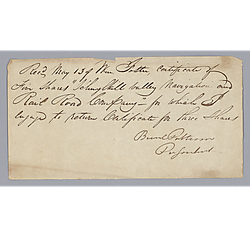 Recd May 13 of Wm Fitler, Certificate of
Five Shares "Schuylkill Valley Navigation and
Rail Road Company" for which I
engage to return Certificate for three Shares
Burd Patterson
President